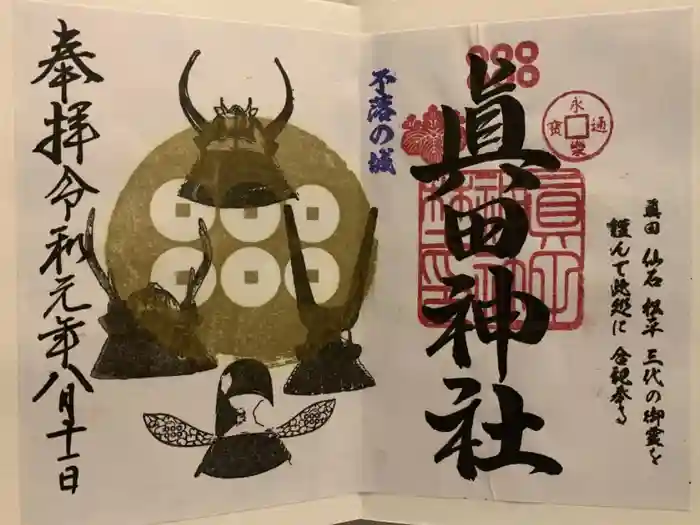 眞田 仙石 松平 三代の御霊を
謹んで此処に 合祀奉る
永
寳 通
楽
眞田神社
不落の城
奉拝令和元年八月十一日